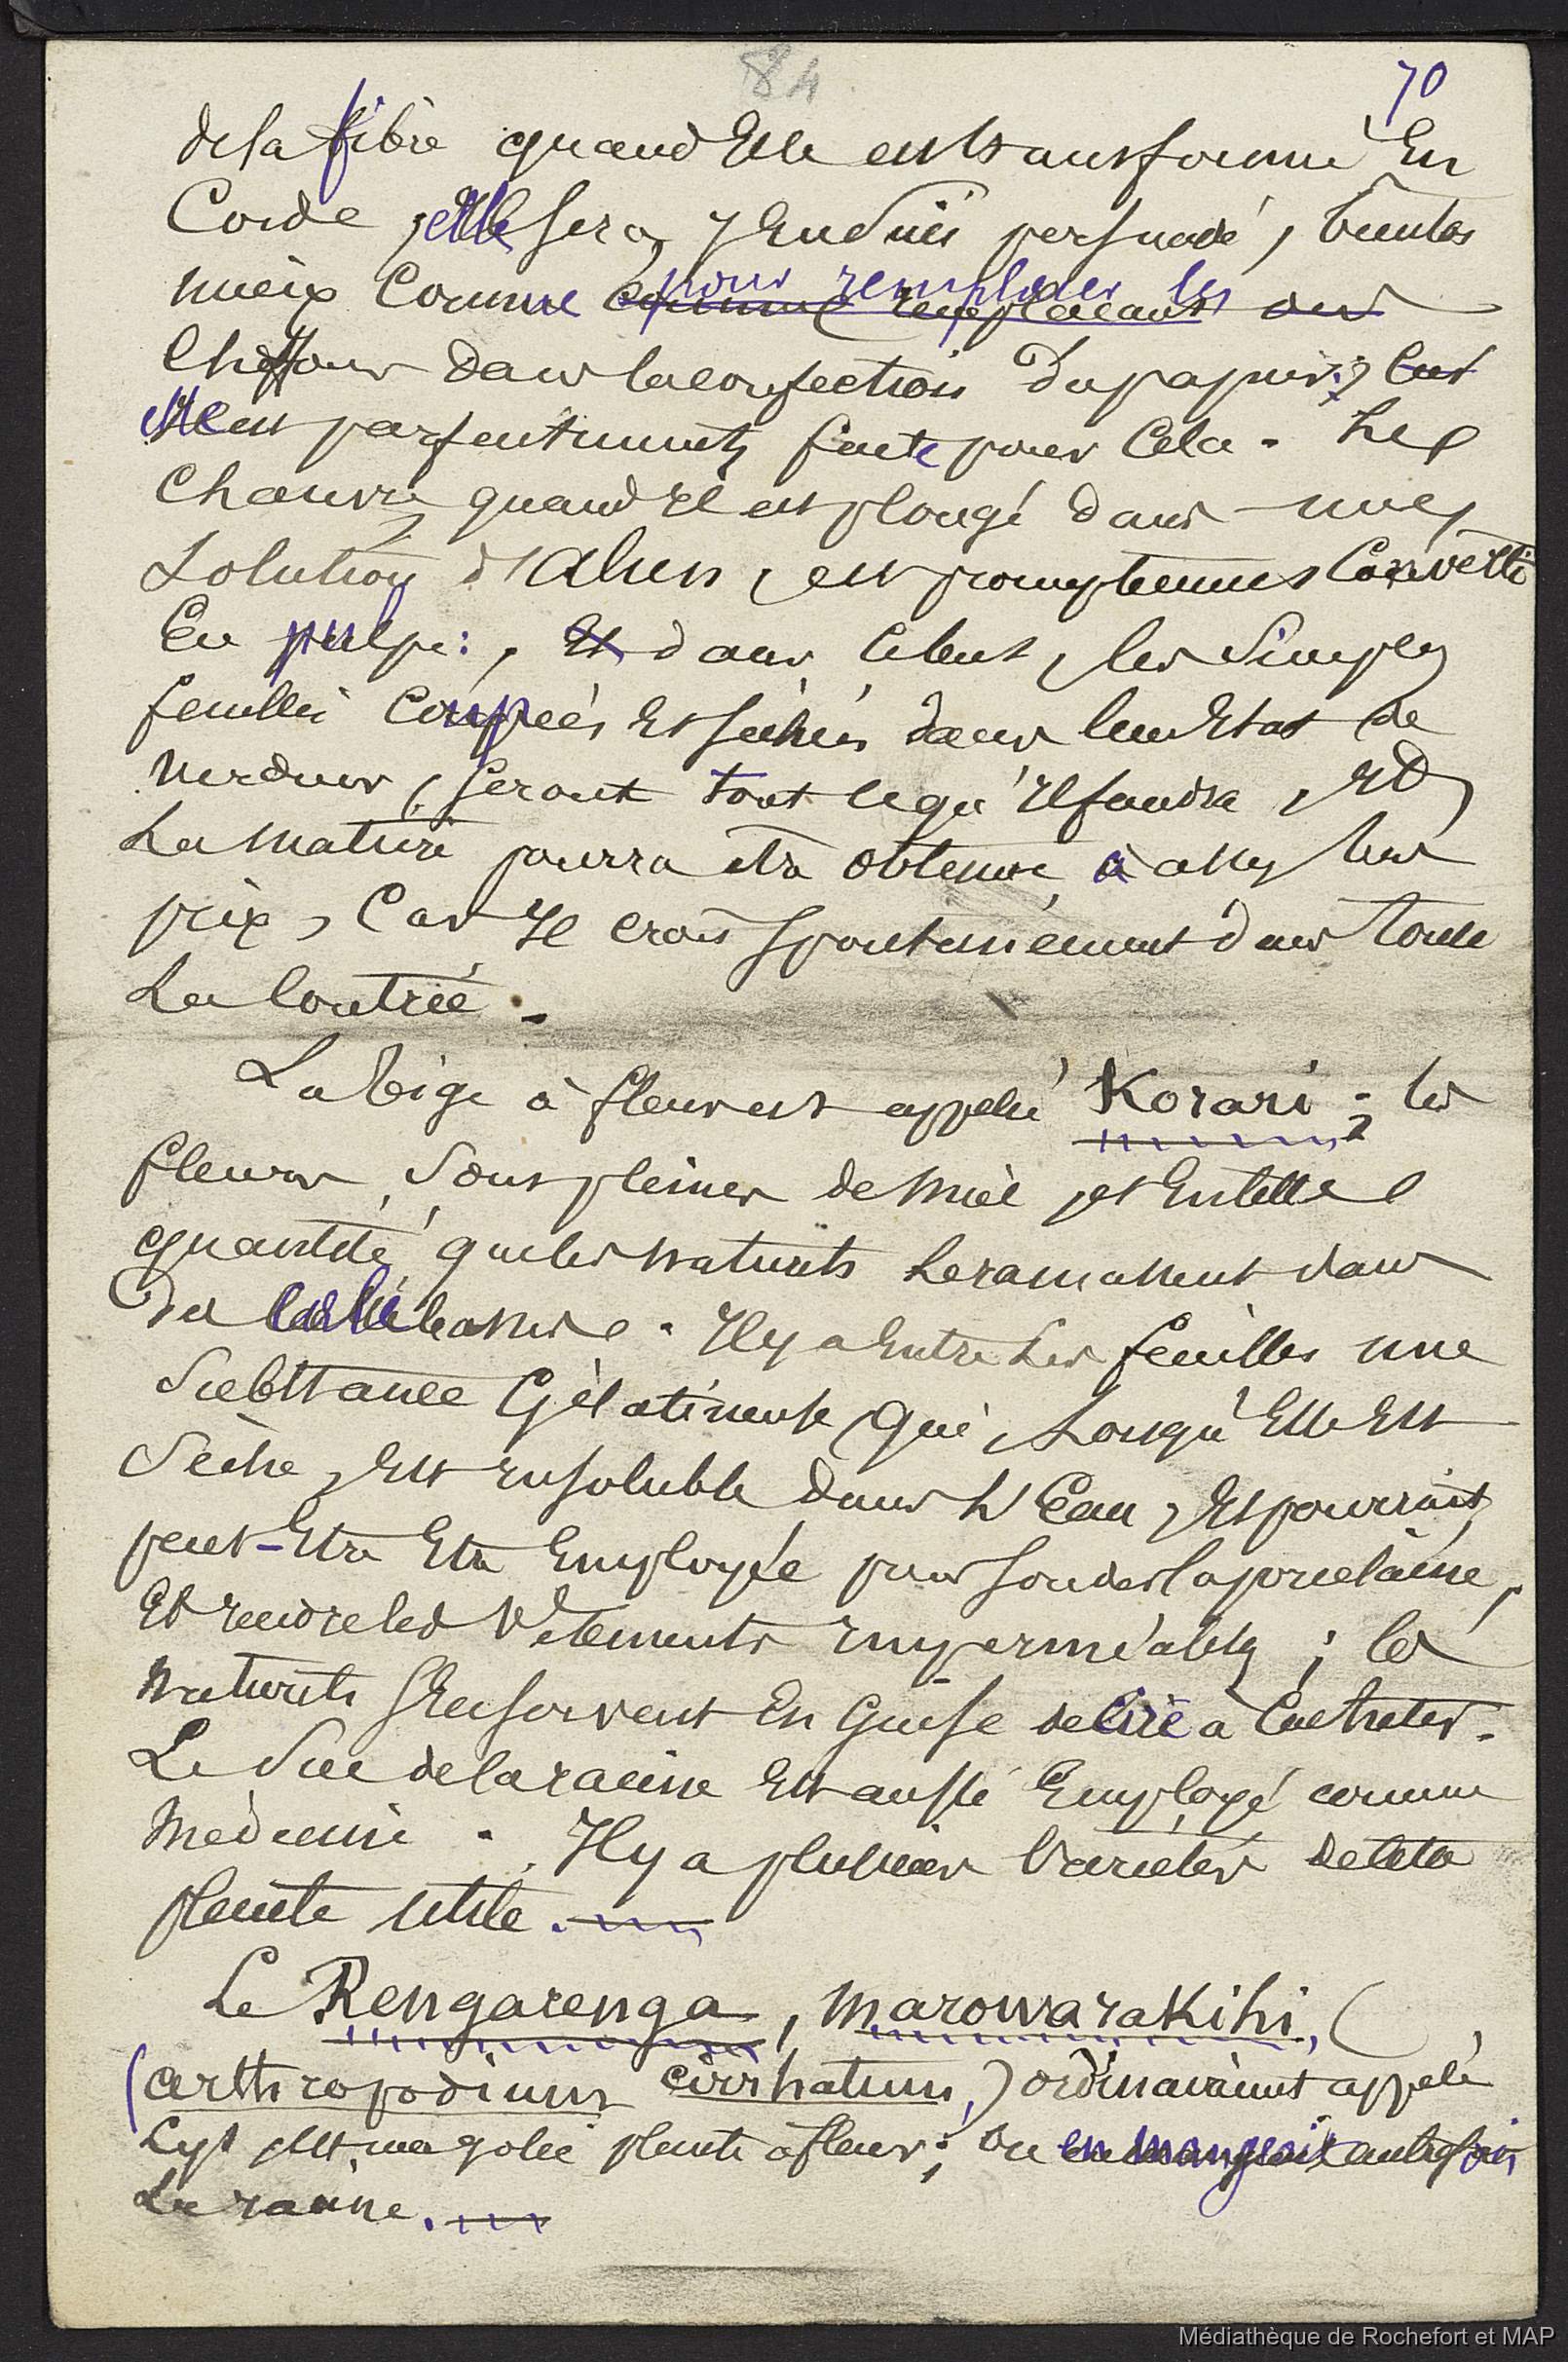 84
70
de la fibre quand Elle est transformé En
Corde, elle sera, J'En suis persuadé, bientot
mieux Connue pour remplacer les
Chiffons dans la confection du papier; Car
elle est parfaitement faite pour Cela. Le
Chanvre quand Il est plongé dans une
Solution d'Alun, est promptement Converti
En pulpe:, Et dans ce but, les Simples
feuilles Coupées Et séchées dans leur Etat de
verdeur, seront tout ce qu'Il faudra, Et
La matière pourra être obtenue à assez bas
prix, Car Il croit spontanément dans toute
La Contrée.
La tige à fleur est appelé Korari; les
fleurs, sont pleines de miel, et En telle
quantité que les naturels Le ramassent dans
des Calebasses. Il y a Entre Les feuilles une
Substance Gélatineuse, qui, Lorsqu'Elle Est
Sèche, Est Insoluble dans L'Eau, Et pourrait
peut-Etre Etre Employée pour souder la porcelaine,
Et rendre les Vêtements Imperméables; les
naturels s'En servent En Guise de cire à Cacheter.
Le Suc de la racine Est aussi Employé comme
Médecine. Il y a plusieurs Variétés de cette
plante utile.
Le Rengarenga, marowarakihi, (
(arthropodium cirrhatum,) ordinairement appelé
Lys, est une jolie plante à fleur; on en mangeait autrefois
La racine.
Médiathèque de Rochefort et MAP